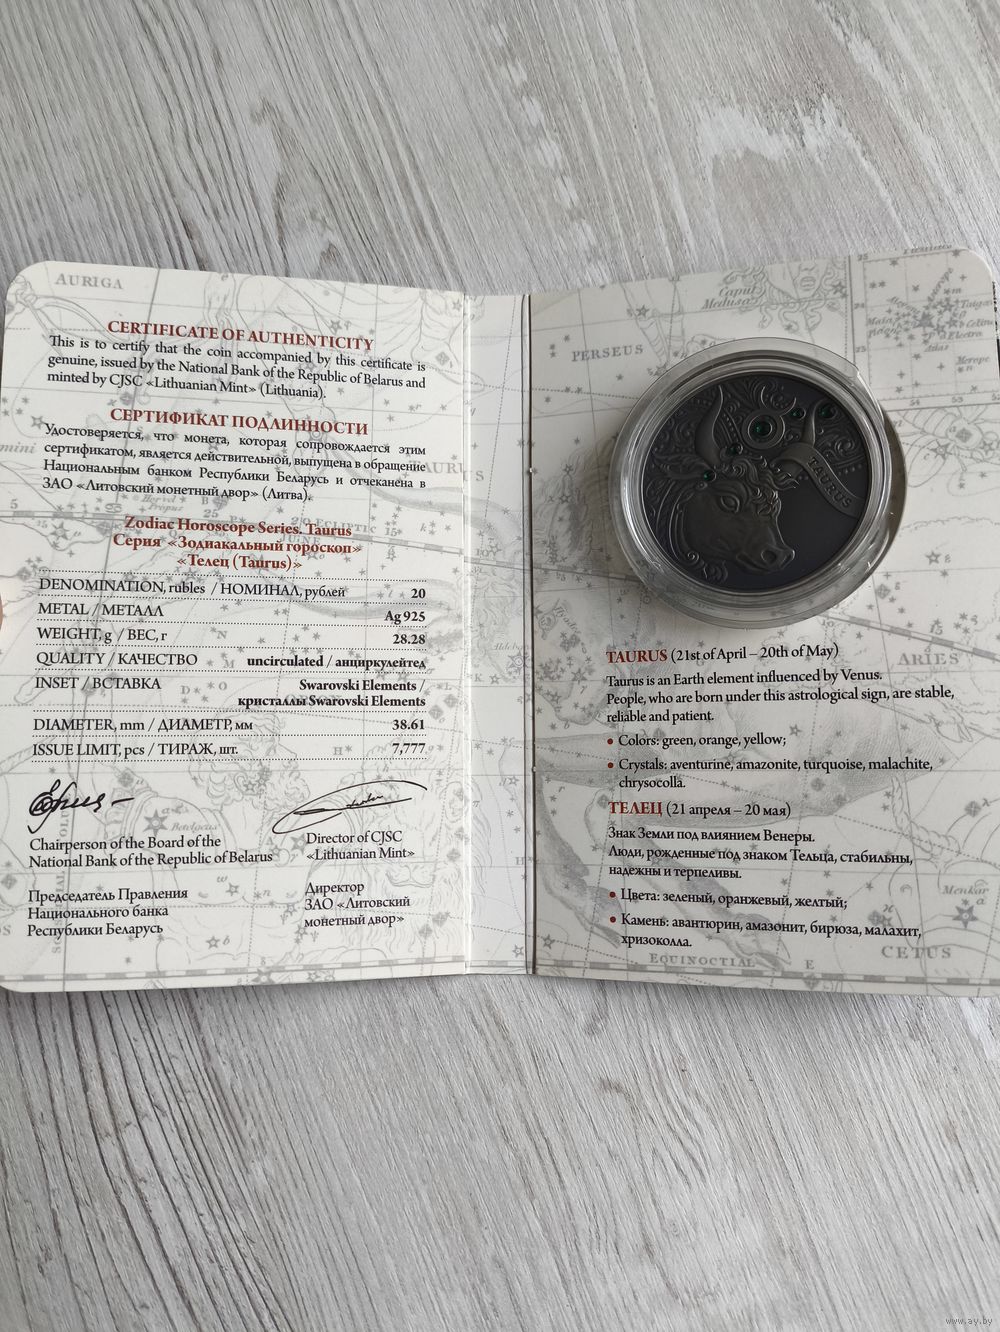 AURIGA
CERTIFICATE OF AUTHENTICITY
This is to certify that the coin accompanied by this certificate is
genuine, issued by the National Bank of the Republic of Belarus and
minted by CJSC «Lithuanian Mint» (Lithuania).
СЕРТИФИКАТ ПОДЛИННОСТИ
Удостоверяется, что монета, которая сопровождается этим
сертификатом, является действительной, выпущена в обращение
Национальным банком Республики Беларусь и отчеканена в
ЗАО «Литовский монетный двор» (Литва).
Zodiac Horoscope Series. Taurus
Серия «Зодиакальный гороскоп»
«Телец (Taurus)»
DENOMINATION, rubles / НОМИНАЛ, рублей 20
METAL / МЕТАЛЛ Ag 925
WEIGHT, g / ВЕС, г 28.28
QUALITY / КАЧЕСТВО uncirculated / анциркулейтед
INSET / ВСТАВКА Swarovski Elements /
кристаллы Swarovski Elements
DIAMETER, mm / ДИАМЕТР, мм 38.61
ISSUE LIMIT, pcs / ТИРАЖ, шт. 7,777
Chairperson of the Board of the
National Bank of the Republic of Belarus
Председатель Правления
Национального банка
Республики Беларусь
Director of CJSC
«Lithuanian Mint»
Директор
ЗАО «Литовский
монетный двор»
Caput
Medusae
PERSEUS
TAURUS
TAURUS (21st of April – 20th of May)
Taurus is an Earth element influenced by Venus.
People, who are born under this astrological sign, are stable,
reliable and patient.
• Colors: green, orange, yellow;
• Crystals: aventurine, amazonite, turquoise, malachite,
chrysocolla.
ТЕЛЕЦ (21 апреля – 20 мая)
Знак Земли под влиянием Венеры.
Люди, рожденные под знаком Тельца, стабильны,
надежны и терпеливы.
• Цвета: зеленый, оранжевый, желтый;
• Камень: авантюрин, амазонит, бирюза, малахит,
хризоколла.
ARIES
Menkar
CETUS
EQUINOCTIAL
www.ay.by